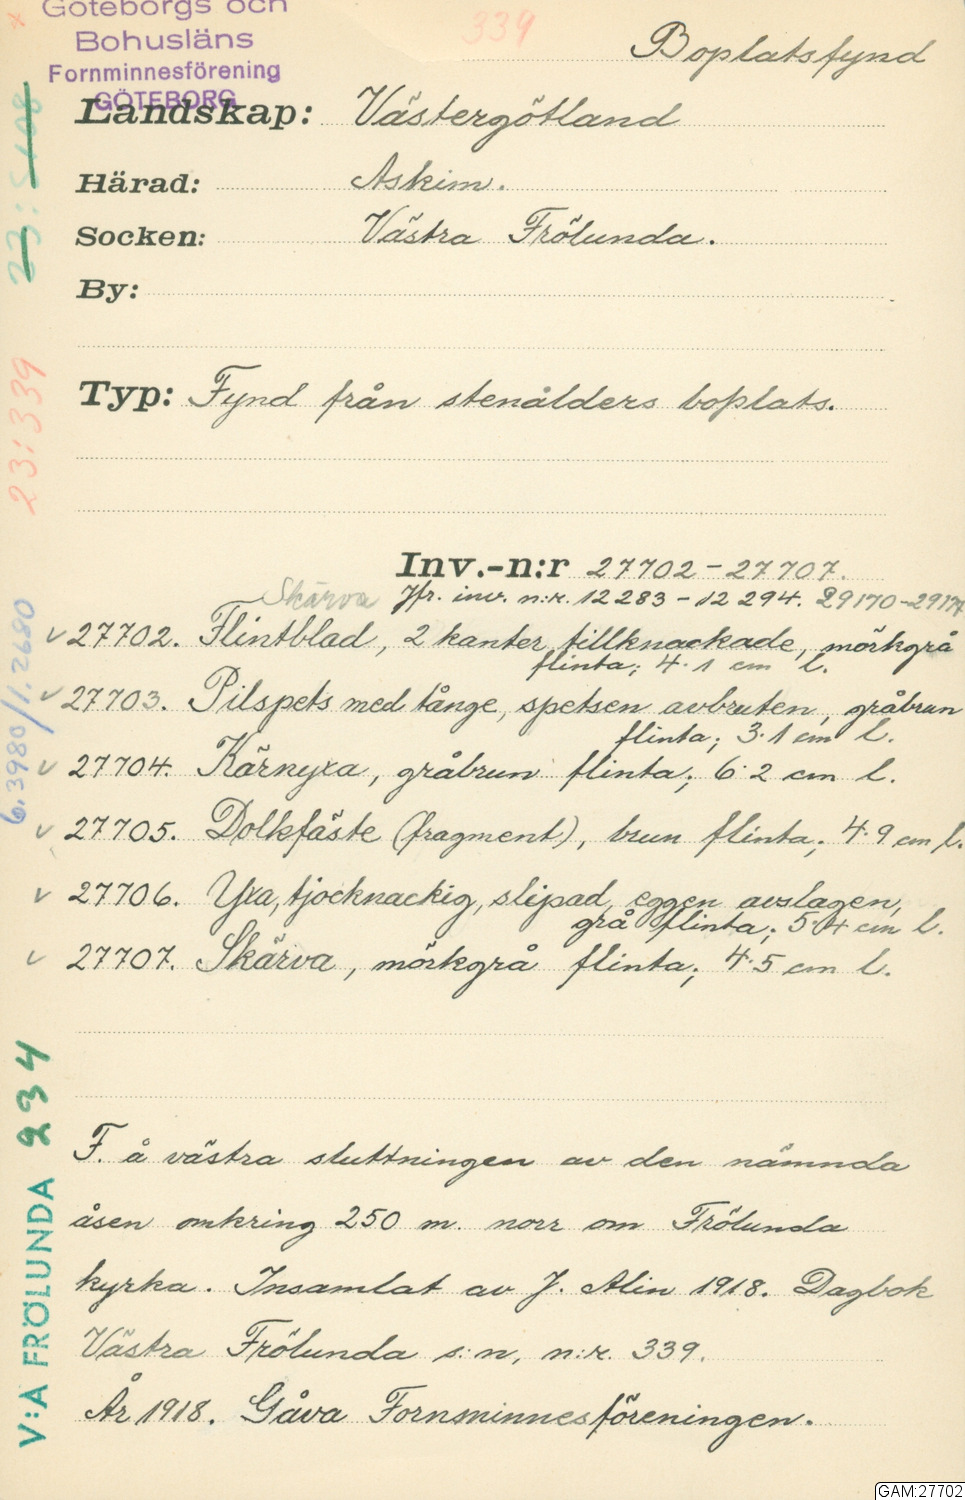 Göteborgs och
Bohusläns
Fornminnesförening
GÖTEBORG
339
Boplatsfynd
Landskap: Västergötland
Härad: Askim.
Socken: Västra Frölunda.
By:
Typ: Fynd från stenålders boplats.
Inv.-n:r 27702 – 27707.
Skärva Jfr. inv. n:r. 12283 – 12294. 29170–29174
27702. Flintblad, 2 kanter tillknackade, mörkgrå
flinta; 4.1 cm l.
27703. Pilspets med tånge, spetsen avbruten, gråbrun
flinta; 3.1 cm l.
27704. Kärnyxa, gråbrun flinta; 6.2 cm l.
27705. Dolkfäste (fragment), brun flinta; 4.9 cm l.
27706. Yxa, tjocknackig, slipad, eggen avslagen,
grå flinta; 5.4 cm l.
27707. Skärva, mörkgrå flinta; 4.5 cm l.
F. å västra sluttningen av den nämnda
åsen omkring 250 m. norr om Frölunda
kyrka. Insamlat av J. Alin 1918. Dagbok
Västra Frölunda s:n, n:r. 339.
År 1918. Gåva Fornminnesföreningen.
23:339
6.3980/1.2680
V:A FRÖLUNDA 234
GAM:27702